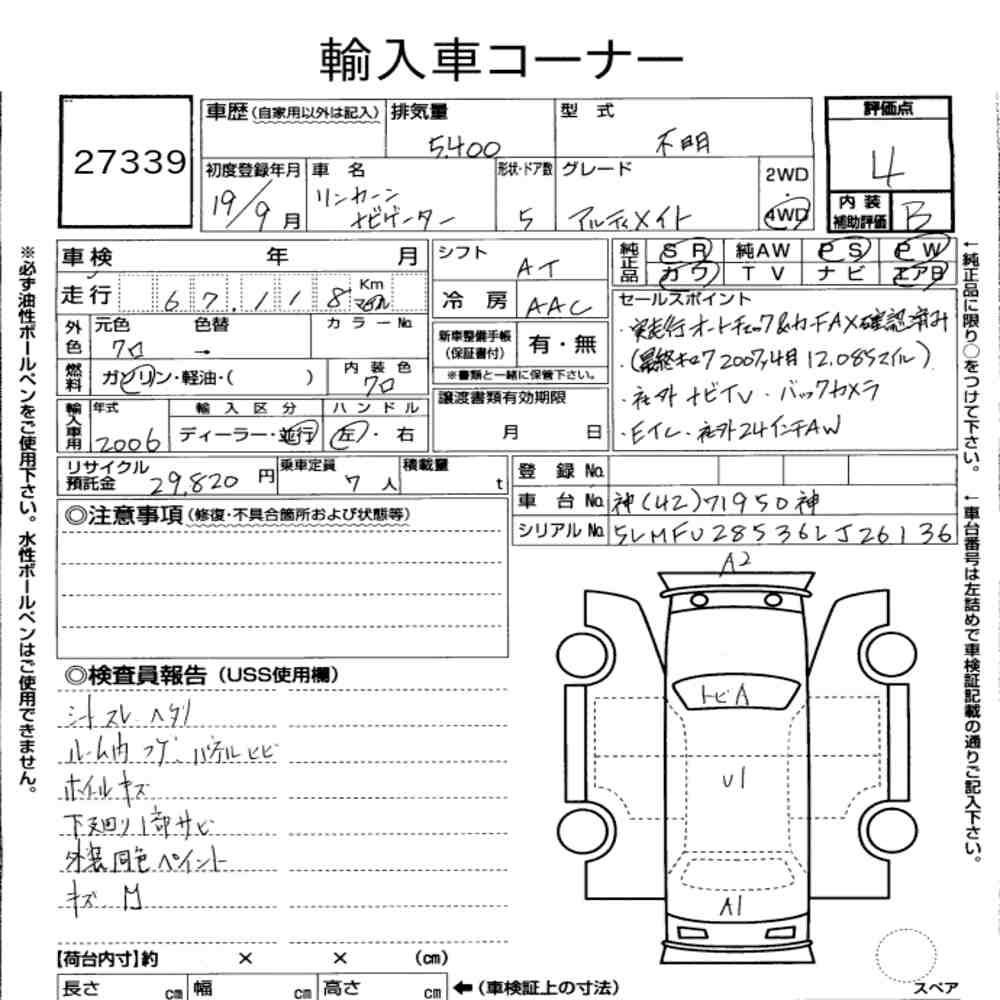 輸入車コーナー
27339
車歴(自家用以外は記入)
排気量
5,400
型 式
不明
評価点
4
内装補助評価
B
初度登録年月
19/9月
車 名
リンカーン
ナビゲーター
形状・ドア数
5
グレード
アルティメイト
2WD
・
4WD
車検 年 月
走行 67,118 Km マイル
シフト
AT
冷 房
AAC
純正品
SR 純AW PS PW
カワ TV ナビ エアB
外色
元色 色替
クロ →
カラーNo.
燃料
ガソリン・軽油・( )
内装色
クロ
新車整備手帳
(保証書付)
有・無
※書類と一緒に保管下さい。
セールスポイント
・実走行 オートチェック&カーFAX確認済み
(最終キロク 2007,4月 12,085マイル)
・社外ナビTV・バックカメラ
・Eイレ・社外24インチAW
輸入車用
年式
2006
輸入区分
ディーラー・並行
ハンドル
左・右
譲渡書類有効期限
月 日
リサイクル預託金
29,820 円
乗車定員
7 人
積載量
t
登 録 No.
車 台 No. 神(42)71950神
シリアル No. 5LMFU28536LJ26136
◎注意事項(修復・不具合箇所および状態等)
◎検査員報告(USS使用欄)
シートスレ ヘタリ
ルーム内コゲ、パネルヒビ
ホイルキズ
下廻り1部サビ
外装同色ペイント
キズ 凹
A2
トビA
U1
A1
スペア
【荷台内寸】約 × × (cm)
長さ cm 幅 cm 高さ cm
←(車検証上の寸法)
※必ず油性ボールペンをご使用下さい。水性ボールペンはご使用できません。
←純正品に限り○をつけて下さい。
←車台番号は左詰めで車検証記載の通りご記入下さい。